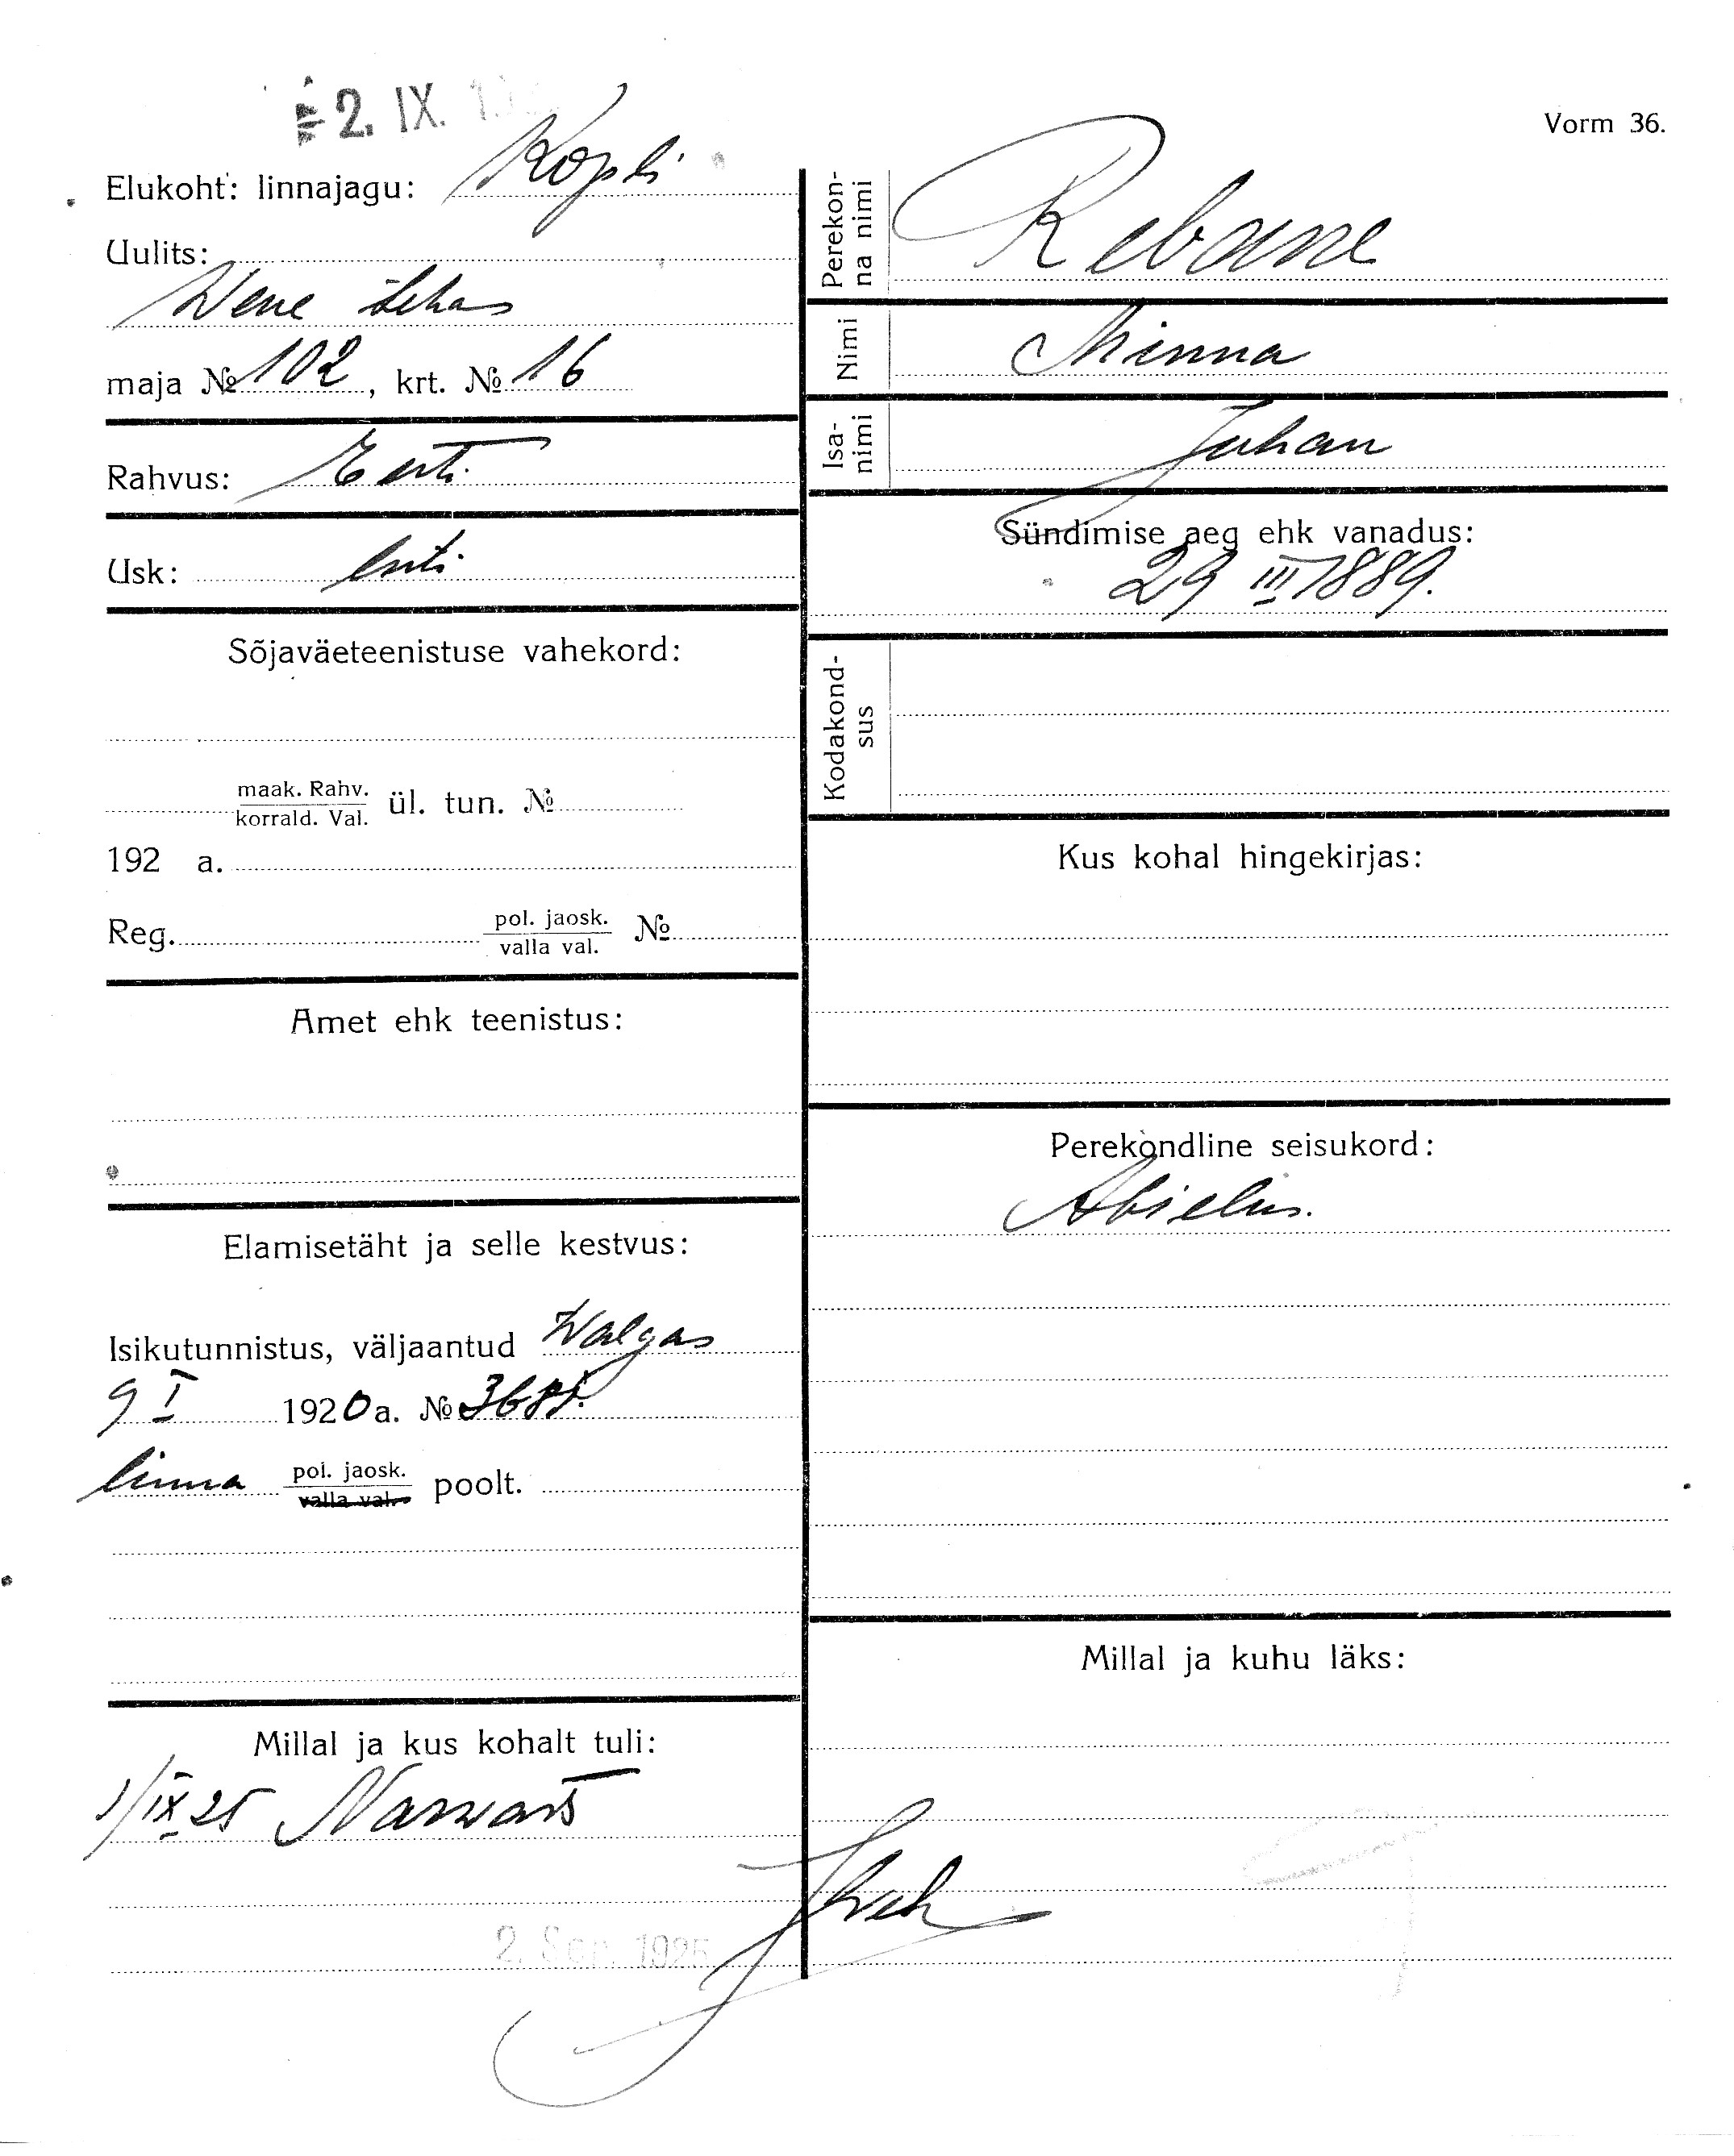 2. IX.
Vorm 36.
Elukoht: linnajagu: Kopli
Uulits:
Wene tehas
maja № 102, krt. № 16
Rahvus: Eesti
Usk: luti
Sõjaväeteenistuse vahekord:
maak. Rahv.
korrald. Val. ül. tun. №
192 a.
Reg. pol. jaosk.
valla val. №
Amet ehk teenistus:
Elamisetäht ja selle kestvus:
Isikutunnistus, väljaantud Walgas
9 I 1920 a. №
linna pol. jaosk.
valla val. poolt.
Millal ja kus kohalt tuli:
1/IX 25 Narvast
2. Sep. 1925
Perekonna nimi Rebane
Nimi Minna
Isanimi Juhan
Sündimise aeg ehk vanadus:
29 III 1889.
Kodakondsus
Kus kohal hingekirjas:
Perekondline seisukord:
Abielus.
Millal ja kuhu läks: